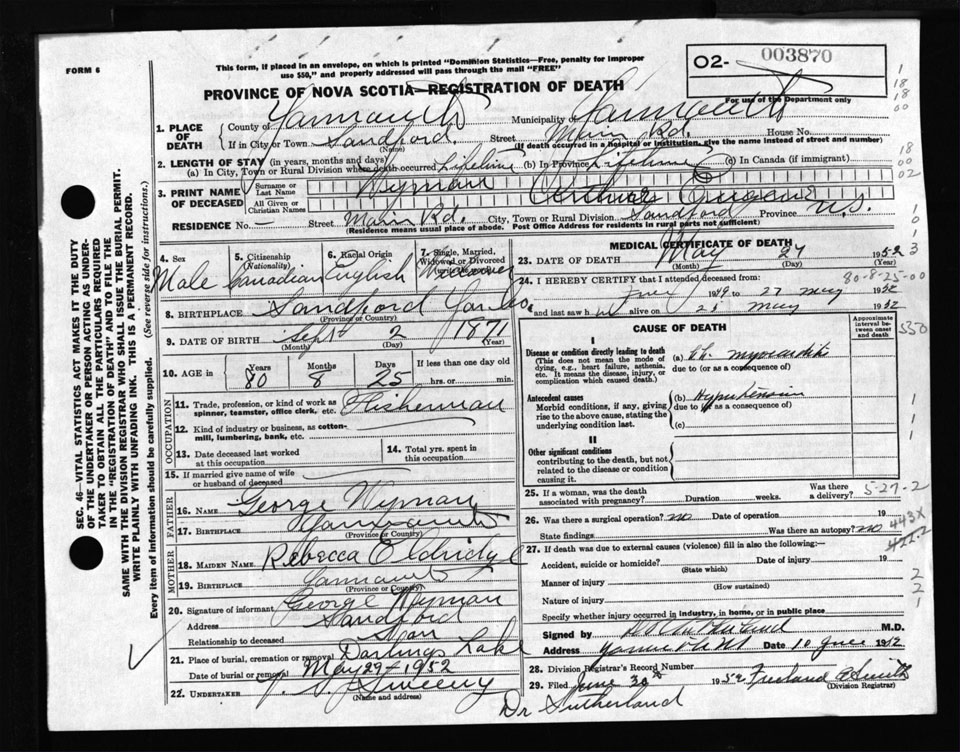 FORM 6
This form, if placed in an envelope, on which is printed "Dominion Statistics—Free, penalty for improper
use $50," and properly addressed will pass through the mail "FREE"
02- 003870
For use of the Department only
PROVINCE OF NOVA SCOTIA—REGISTRATION OF DEATH
1. PLACE OF DEATH
County of Yarmouth Municipality of Yarmouth
If in City or Town Sandford. Street Main Rd. House No.
(Name) (If death occurred in a hospital or institution, give the name instead of street and number)
2. LENGTH OF STAY (in years, months and days)
(a) In City, Town or Rural Division where death occurred Lifetime (b) In Province Lifetime (c) In Canada (if immigrant)
3. PRINT NAME OF DECEASED
Surname or Last Name Wyman
All Given or Christian Names Arthur
RESIDENCE No. — Street Main Rd. City, Town or Rural Division Sandford Province N.S.
(Residence means usual place of abode. Post Office Address for residents in rural parts not sufficient)
4. Sex Male
5. Citizenship (Nationality) Canadian
6. Racial Origin English
7. Single, Married, Widowed or Divorced Widower
8. BIRTHPLACE Sandford Yar. Co.
(Province or Country)
9. DATE OF BIRTH Sept 2 1871
(Month) (Day) (Year)
10. AGE in Years 80 Months 8 Days 25 If less than one day old
hrs. or min.
OCCUPATION
11. Trade, profession, or kind of work as spinner, teamster, office clerk, etc. Fisherman
12. Kind of industry or business, as cotton-mill, lumbering, bank, etc.
13. Date deceased last worked at this occupation
14. Total yrs. spent in this occupation
15. If married give name of wife or husband of deceased
FATHER
16. NAME George Wyman
17. BIRTHPLACE Yarmouth
(Province or Country)
MOTHER
18. MAIDEN NAME Rebecca Eldridge
19. BIRTHPLACE Yarmouth
(Province or Country)
20. Signature of informant George Wyman
Address Sandford
Relationship to deceased Son
21. Place of burial, cremation or removal Darlings Lake
Date of burial or removal May 29th 1952
22. UNDERTAKER Sweeny
(Name and address)
MEDICAL CERTIFICATE OF DEATH
23. DATE OF DEATH May 27 1952
(Month) (Day) (Year)
80-8-25-00
24. I HEREBY CERTIFY that I attended deceased from:
1949 to 27 May 1952
and last saw h alive on 25 May 1952
CAUSE OF DEATH
Approximate interval between onset and death
I
Disease or condition directly leading to death (a) Ch. myocarditis
(This does not mean the mode of dying, e.g., heart failure, asthenia, etc. It means the disease, injury, or complication which caused death.)
due to (or as a consequence of)
Antecedent causes (b) Hypertension
Morbid conditions, if any, giving rise to the above cause, stating the underlying condition last.
due to (or as a consequence of)
(c)
II
Other significant conditions
contributing to the death, but not related to the disease or condition causing it.
25. If a woman, was the death associated with pregnancy? Duration weeks. Was there a delivery?
5-27-2
26. Was there a surgical operation? no Date of operation 19
State findings Was there an autopsy? no
443X
422.2
27. If death was due to external causes (violence) fill in also the following:—
Accident, suicide or homicide? Date of injury 19
(State which)
Manner of injury
(How sustained)
Nature of injury
Specify whether injury occurred in industry, in home, or in public place
Signed by M.D.
Address Yarmouth NS Date 10 June 1952
28. Division Registrar's Record Number
29. Filed June 30th 1952 Freeland A Smith
(Division Registrar)
Dr Sutherland
SEC. 46—VITAL STATISTICS ACT MAKES IT THE DUTY
OF THE UNDERTAKER OR PERSON ACTING AS UNDER-
TAKER TO OBTAIN ALL THE PARTICULARS REQUIRED
IN THE "REGISTRATION OF DEATH" AND TO FILE THE
SAME WITH THE DIVISION REGISTRAR WHO SHALL ISSUE THE BURIAL PERMIT.
WRITE PLAINLY WITH UNFADING INK. THIS IS A PERMANENT RECORD.
Every item of information should be carefully supplied. (See reverse side for instructions.)